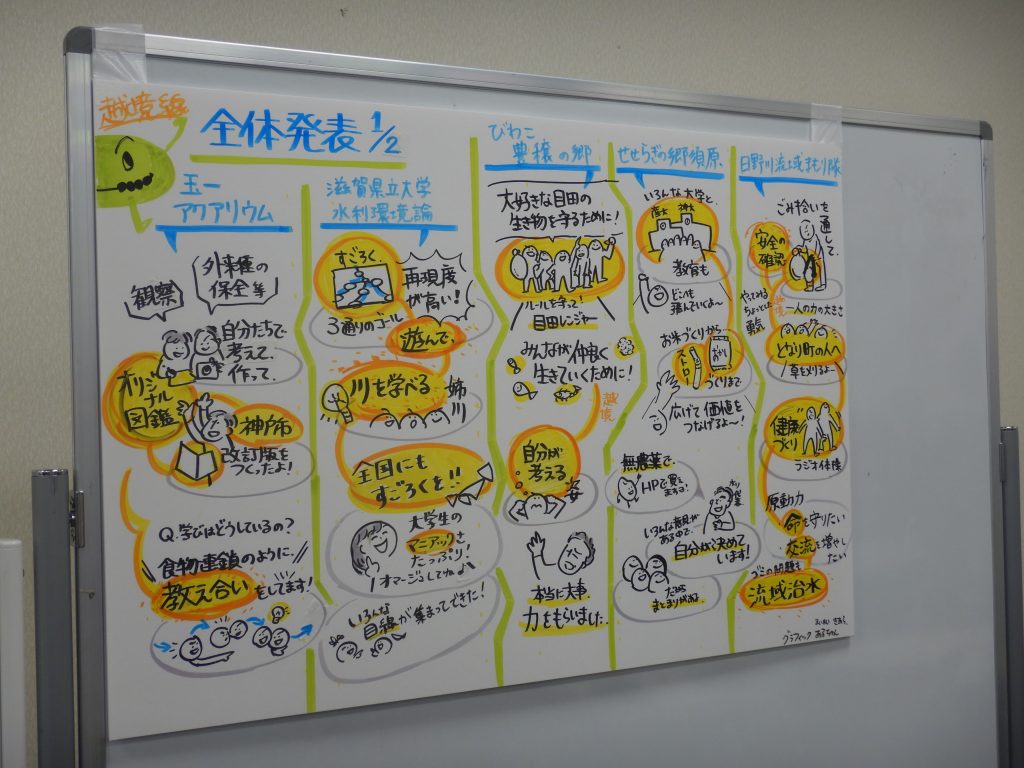 越境編
全体発表 1/2
玉一
アクアリウム
観察
外来種の
保全等
自分たちで
考えて、
作って、
オリジナル
図鑑
神戸市
改訂版を
つくったよ!
Q.学びはどうしているの?
食物連鎖のように、
教え合い
をしてます!
滋賀県立大学
水利環境論
すごろく
再現度
が高い!
3通りのゴール
遊んで、
川を学べる
姉川
全国にも
すごろくを!!
大学生の
マニアックさ
たっぷり!
いろんな
目線が集まってできた!
びわこ
豊穣の郷
大好きな目田の
生き物を守るために!
ルールを守って!
目田レンジャー
みんなが仲良く
生きていくために!
越境
自分が
考える
本当に大事
力をもらいました。
せせらぎの郷須原
いろんな大学と、
教育も
どこへも
飛んでいくよ〜
お米づくりから…
づくりまで
広げて価値を
つなげるよ〜!
無農薬で、
HPで買え
ますよ!
いろんな意見が
ある中で、
自分が決めて
います!
だから
まとまりがある
日野川流域まもり隊
ごみ拾いを
通して、
安全の
確認
やってみる
ちょっとした
勇気
越境
一人の力の大きさ
となり町の人へ
草を刈るよー
健康
づくり
ラジオ体操
原動力
命を守りたい
交流を増やし
たい
ゴミの問題も
流域治水
グラフィック
あるちゃん